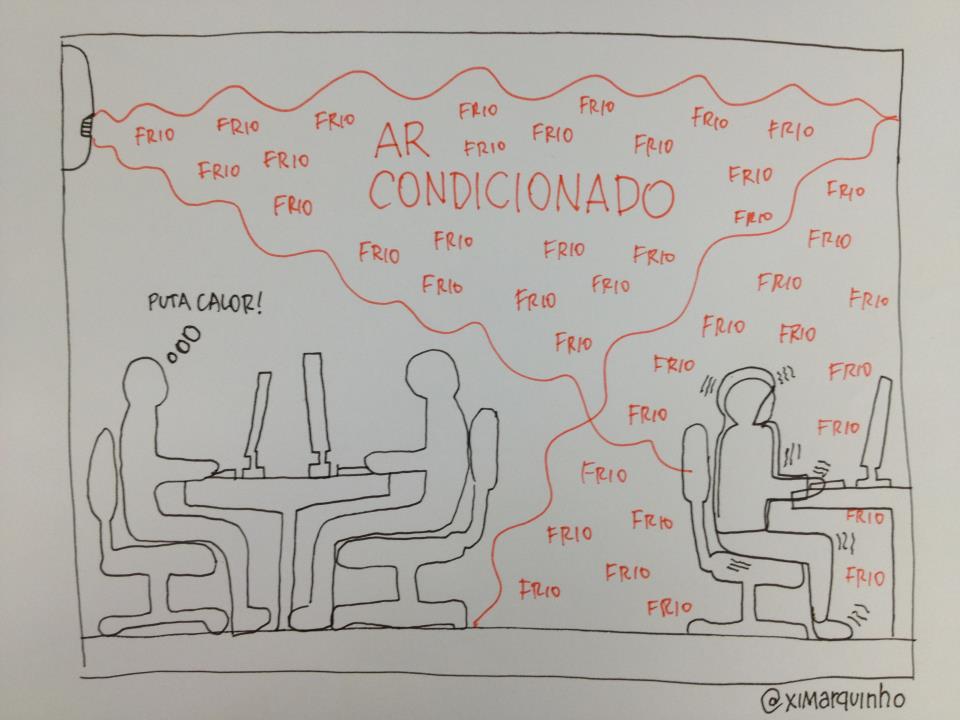 FRIO FRIO FRIO FRIO FRIO FRIO FRIO
FRIO FRIO FRIO
FRIO FRIO
AR
CONDICIONADO
FRIO FRIO FRIO
FRIO
FRIO FRIO FRIO FRIO FRIO
FRIO FRIO FRIO FRIO FRIO
PUTA CALOR!
FRIO FRIO FRIO
FRIO FRIO
FRIO FRIO
FRIO
FRIO FRIO FRIO
FRIO FRIO FRIO
FRIO
@XIMARQUINHO